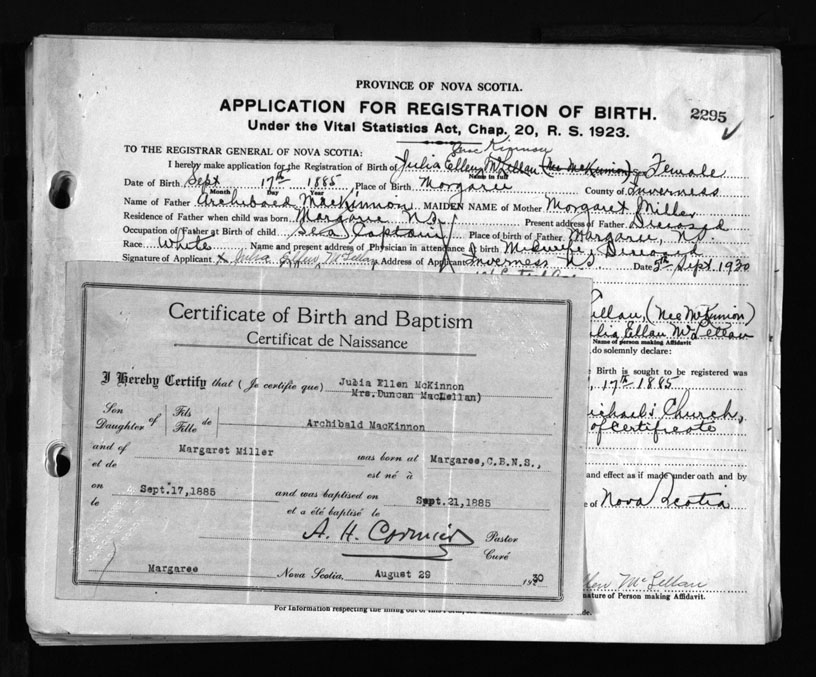 PROVINCE OF NOVA SCOTIA.
APPLICATION FOR REGISTRATION OF BIRTH.
2295
Under the Vital Statistics Act, Chap. 20, R. S. 1923.
TO THE REGISTRAR GENERAL OF NOVA SCOTIA:
I hereby make application for the Registration of Birth of Julia Ellen McLellan (Nee McKinnon) Sex Female
Name in full
Date of Birth Sept 17th 1885 Place of Birth Margaree County of Inverness
Month Day Year
Name of Father Archibald MacKinnon MAIDEN NAME of Mother Margaret Miller
Residence of Father when child was born Margaree N.S. Present address of Father Deceased
Occupation of Father at Birth of child Sea Captain Place of birth of Father Margaree, N.S
Race White Name and present address of Physician in attendance at birth Midwife, Deceased
Signature of Applicant x Julia Ellen McLellan Address of Applicant Inverness N.S Date 5th Sept 1930
Lellan, (Nee McKinnon)
Julia Ellen McLellan
Name of person making Affidavit
, do solemnly declare:
Birth is sought to be registered was
17th 1885
Michael's Church,
of Certificate
and effect as if made under oath and by
e of Nova Scotia
Ellen McLellan
nature of Person making Affidavit.
Certificate of Birth and Baptism
Certificat de Naissance
I Hereby Certify that (Je certifie que) Julia Ellen McKinnon
Mrs.Duncan MacLellan)
Son
Daughter of Fils
Fille de Archibald MacKinnon
and of Margaret Miller was born at Margaree,C.B.N.S.,
et de est né à
on Sept.17,1885 and was baptised on Sept.21,1885
le et a été baptisé le
A. H. Cormier Pastor
Curé
Margaree Nova Scotia, August 29 1930
For Information respecting the filling out of this